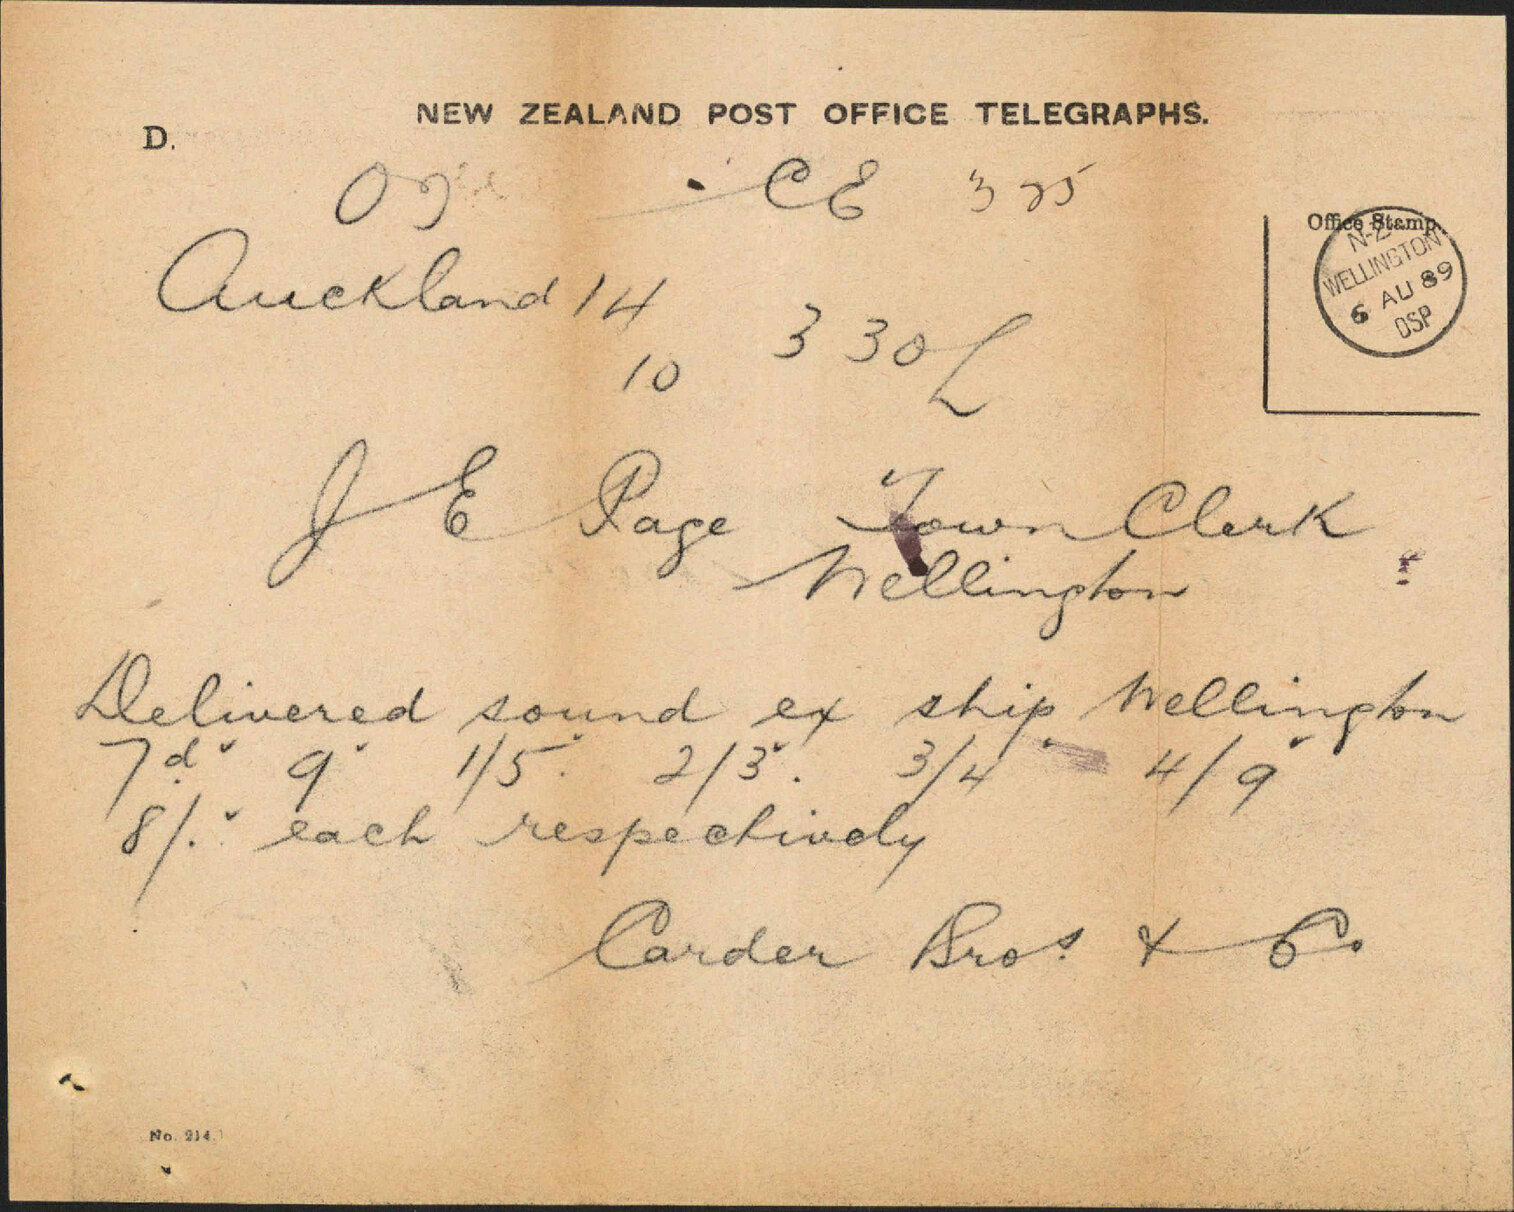 NEW ZEALAND POST OFFICE TELEGRAPHS.
D.
CE 325
Office Stamp.
N-Z
WELLINGTON
6 AU 89
DSP
Auckland 14
10
3 30 L
J E Page Town Clerk
Wellington
Delivered sound ex ship Wellington
7d 9 1/5 2/3 3/4 4/9
8/. each respectively
Carder Bros. & Co
No. 214.